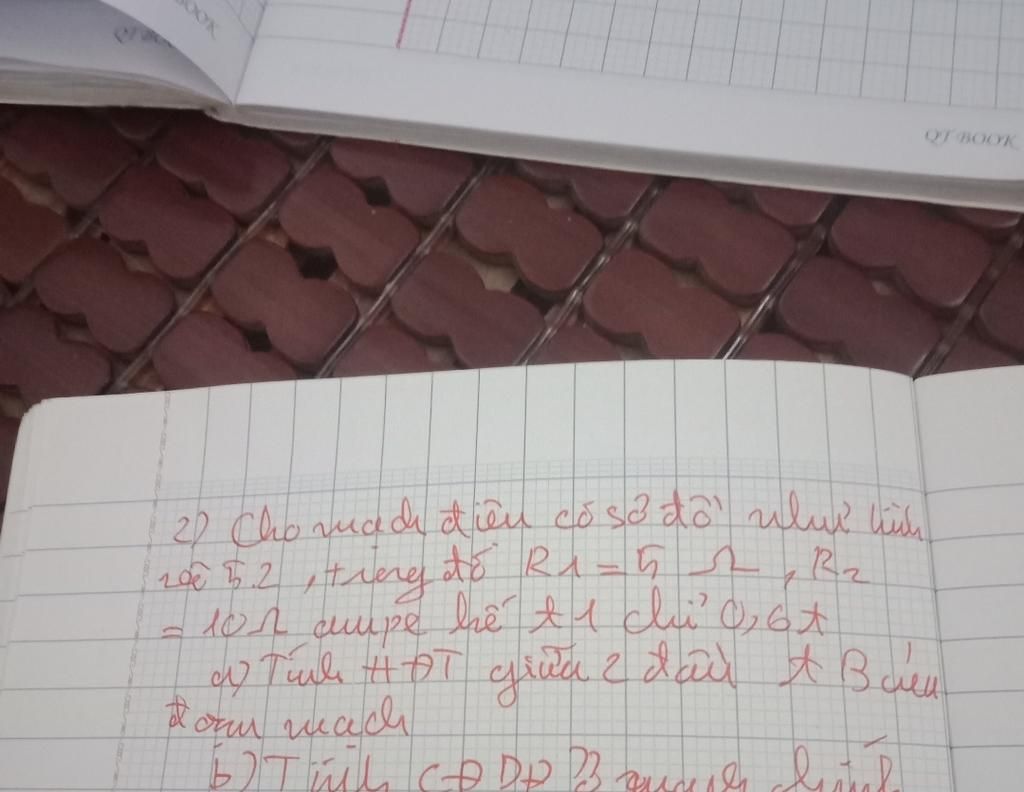 QT BOOK
2) Cho mạch điện có sơ đồ như hình
vẽ 5.2, trong đó R1 = 5 Ω, R2
= 10Ω ampe kế A1 chỉ 0,6A
a) Tính HĐT giữa 2 đầu AB của
đoạn mạch
b) Tính CĐDĐ